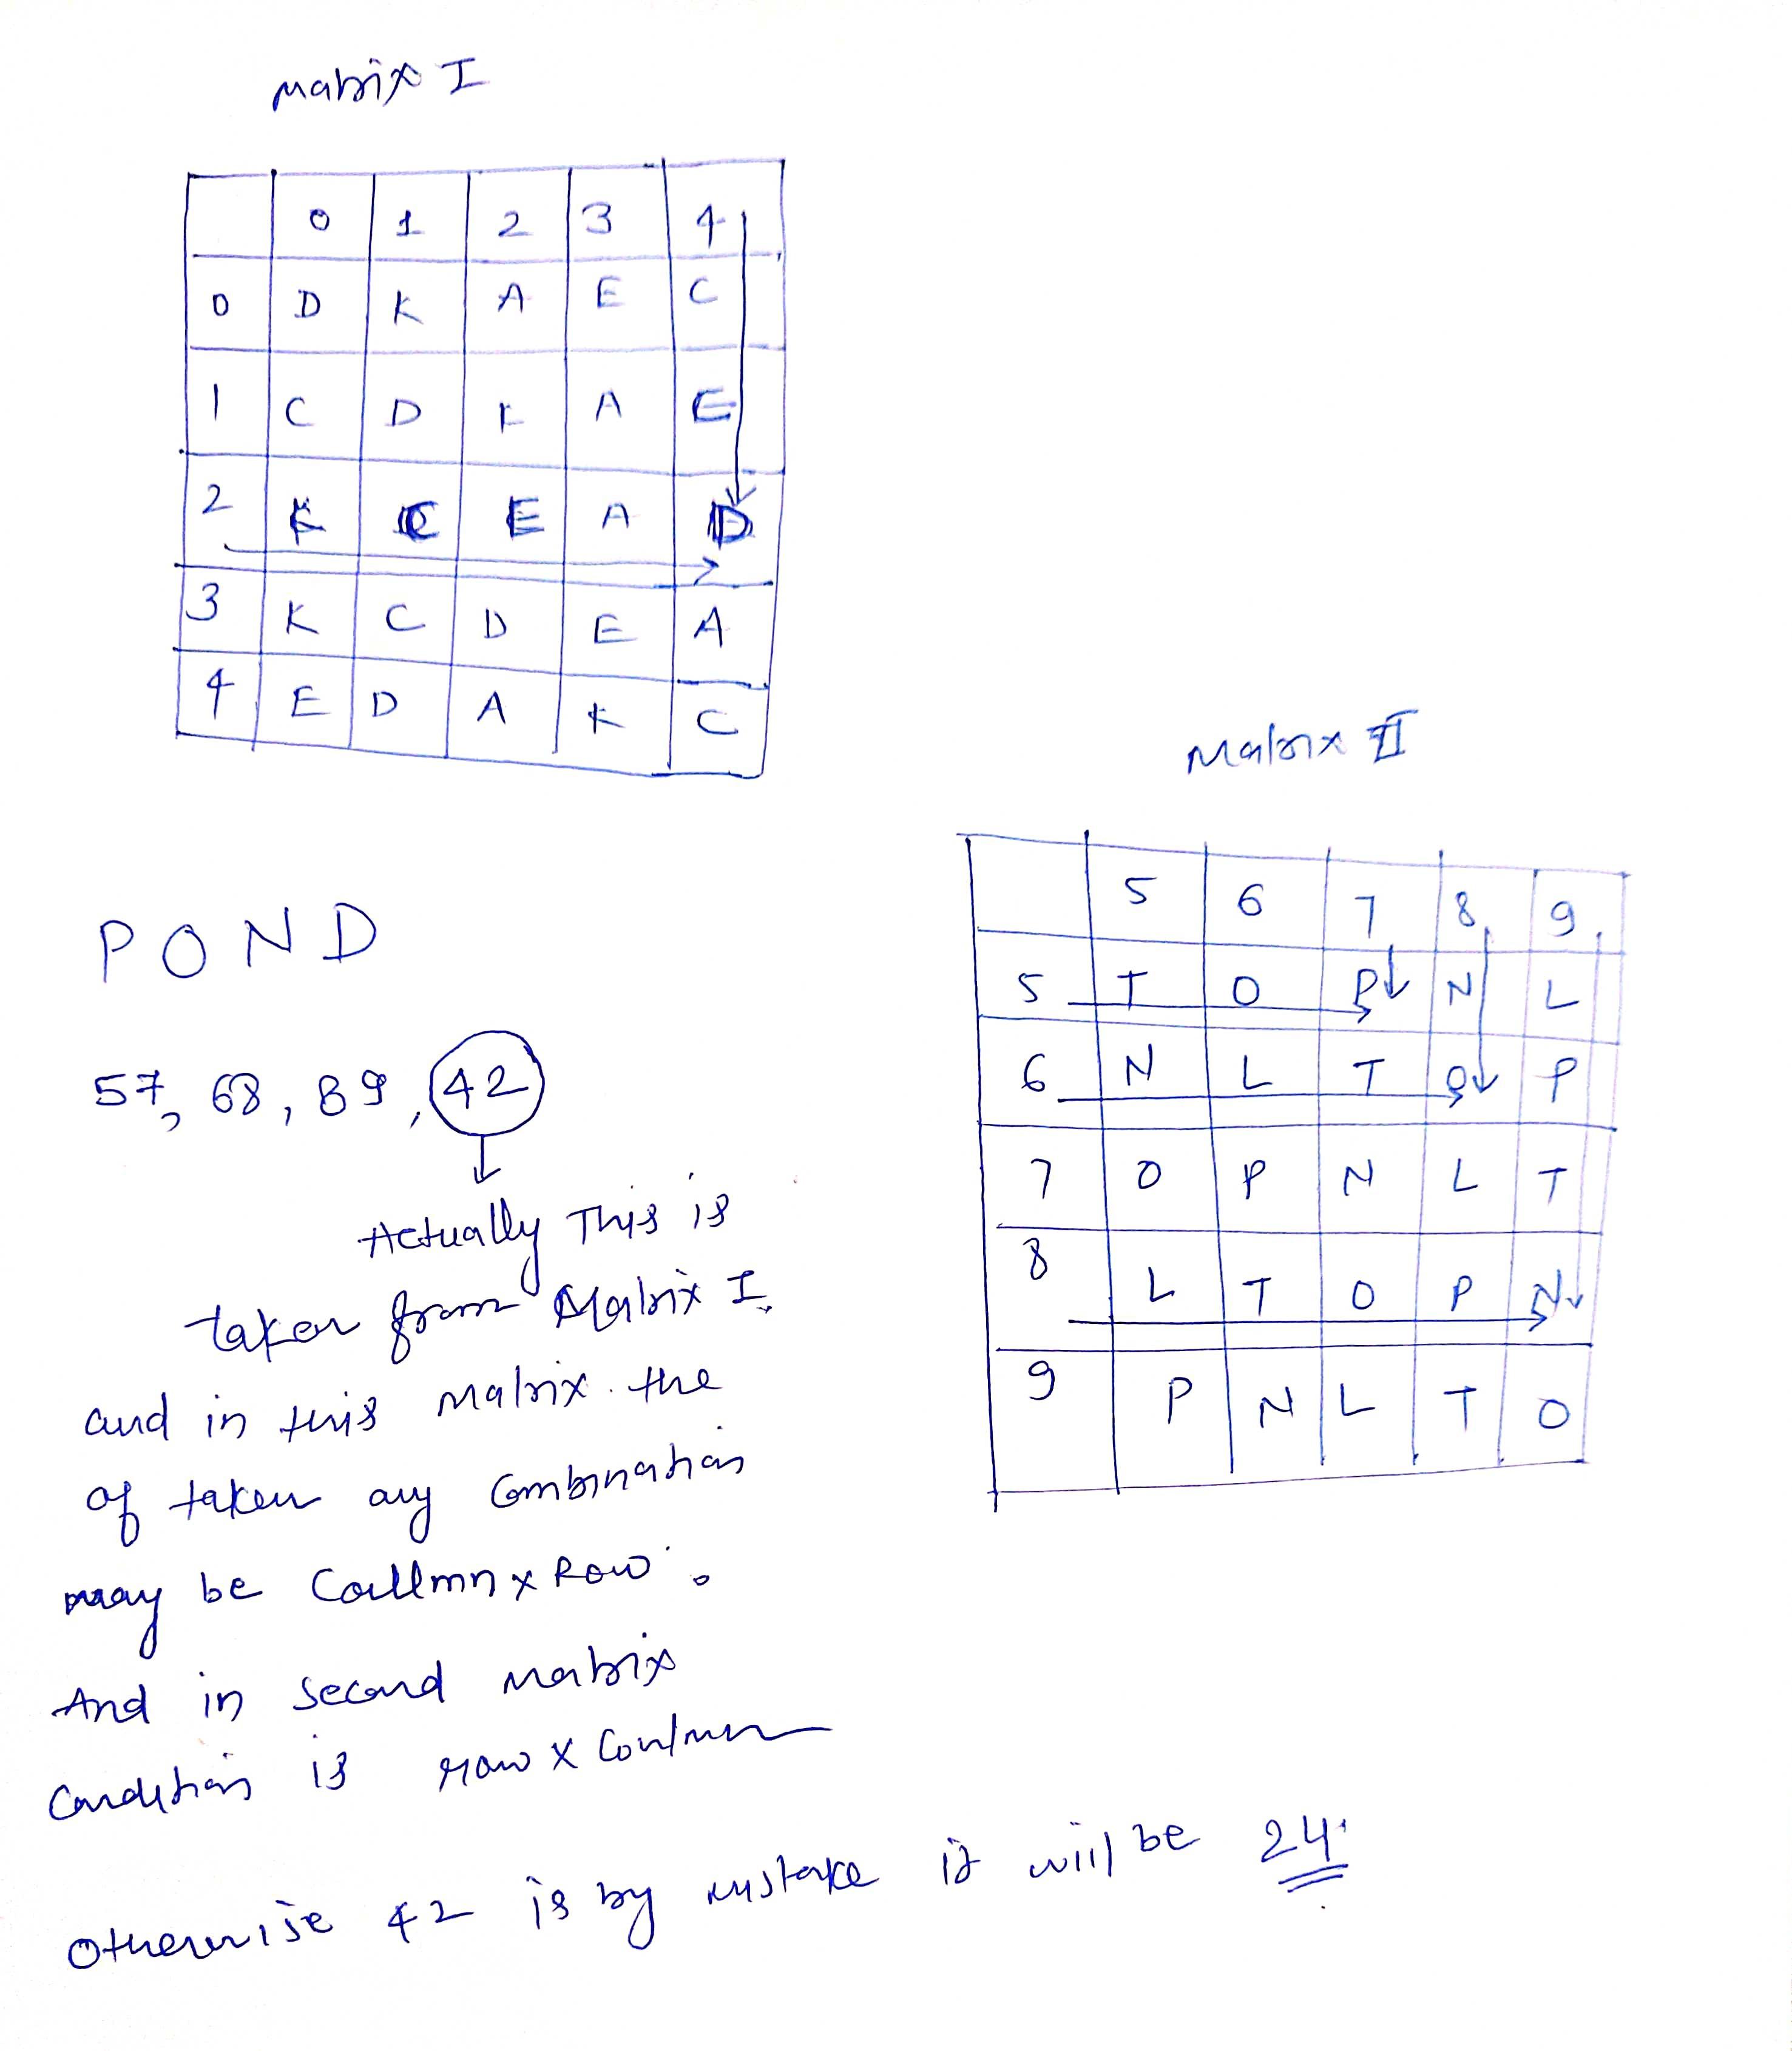 Matrix I
0 1 2 3 4
0 D K A E C
1 C D K A E
2 K C E A D
3 K C D E A
4 E D A K C
Matrix II
5 6 7 8 9
5 T O P N L
6 N L T O P
7 O P N L T
8 L T O P N
9 P N L T O
POND
57, 68, 89, 42
Actually This is
taken from Matrix I.
and in this matrix. the
of taken any Combination
may be Coullmn x Row.
And in second matrix
Condition is row x
Otherwise 42 is by mistake it will be 24.